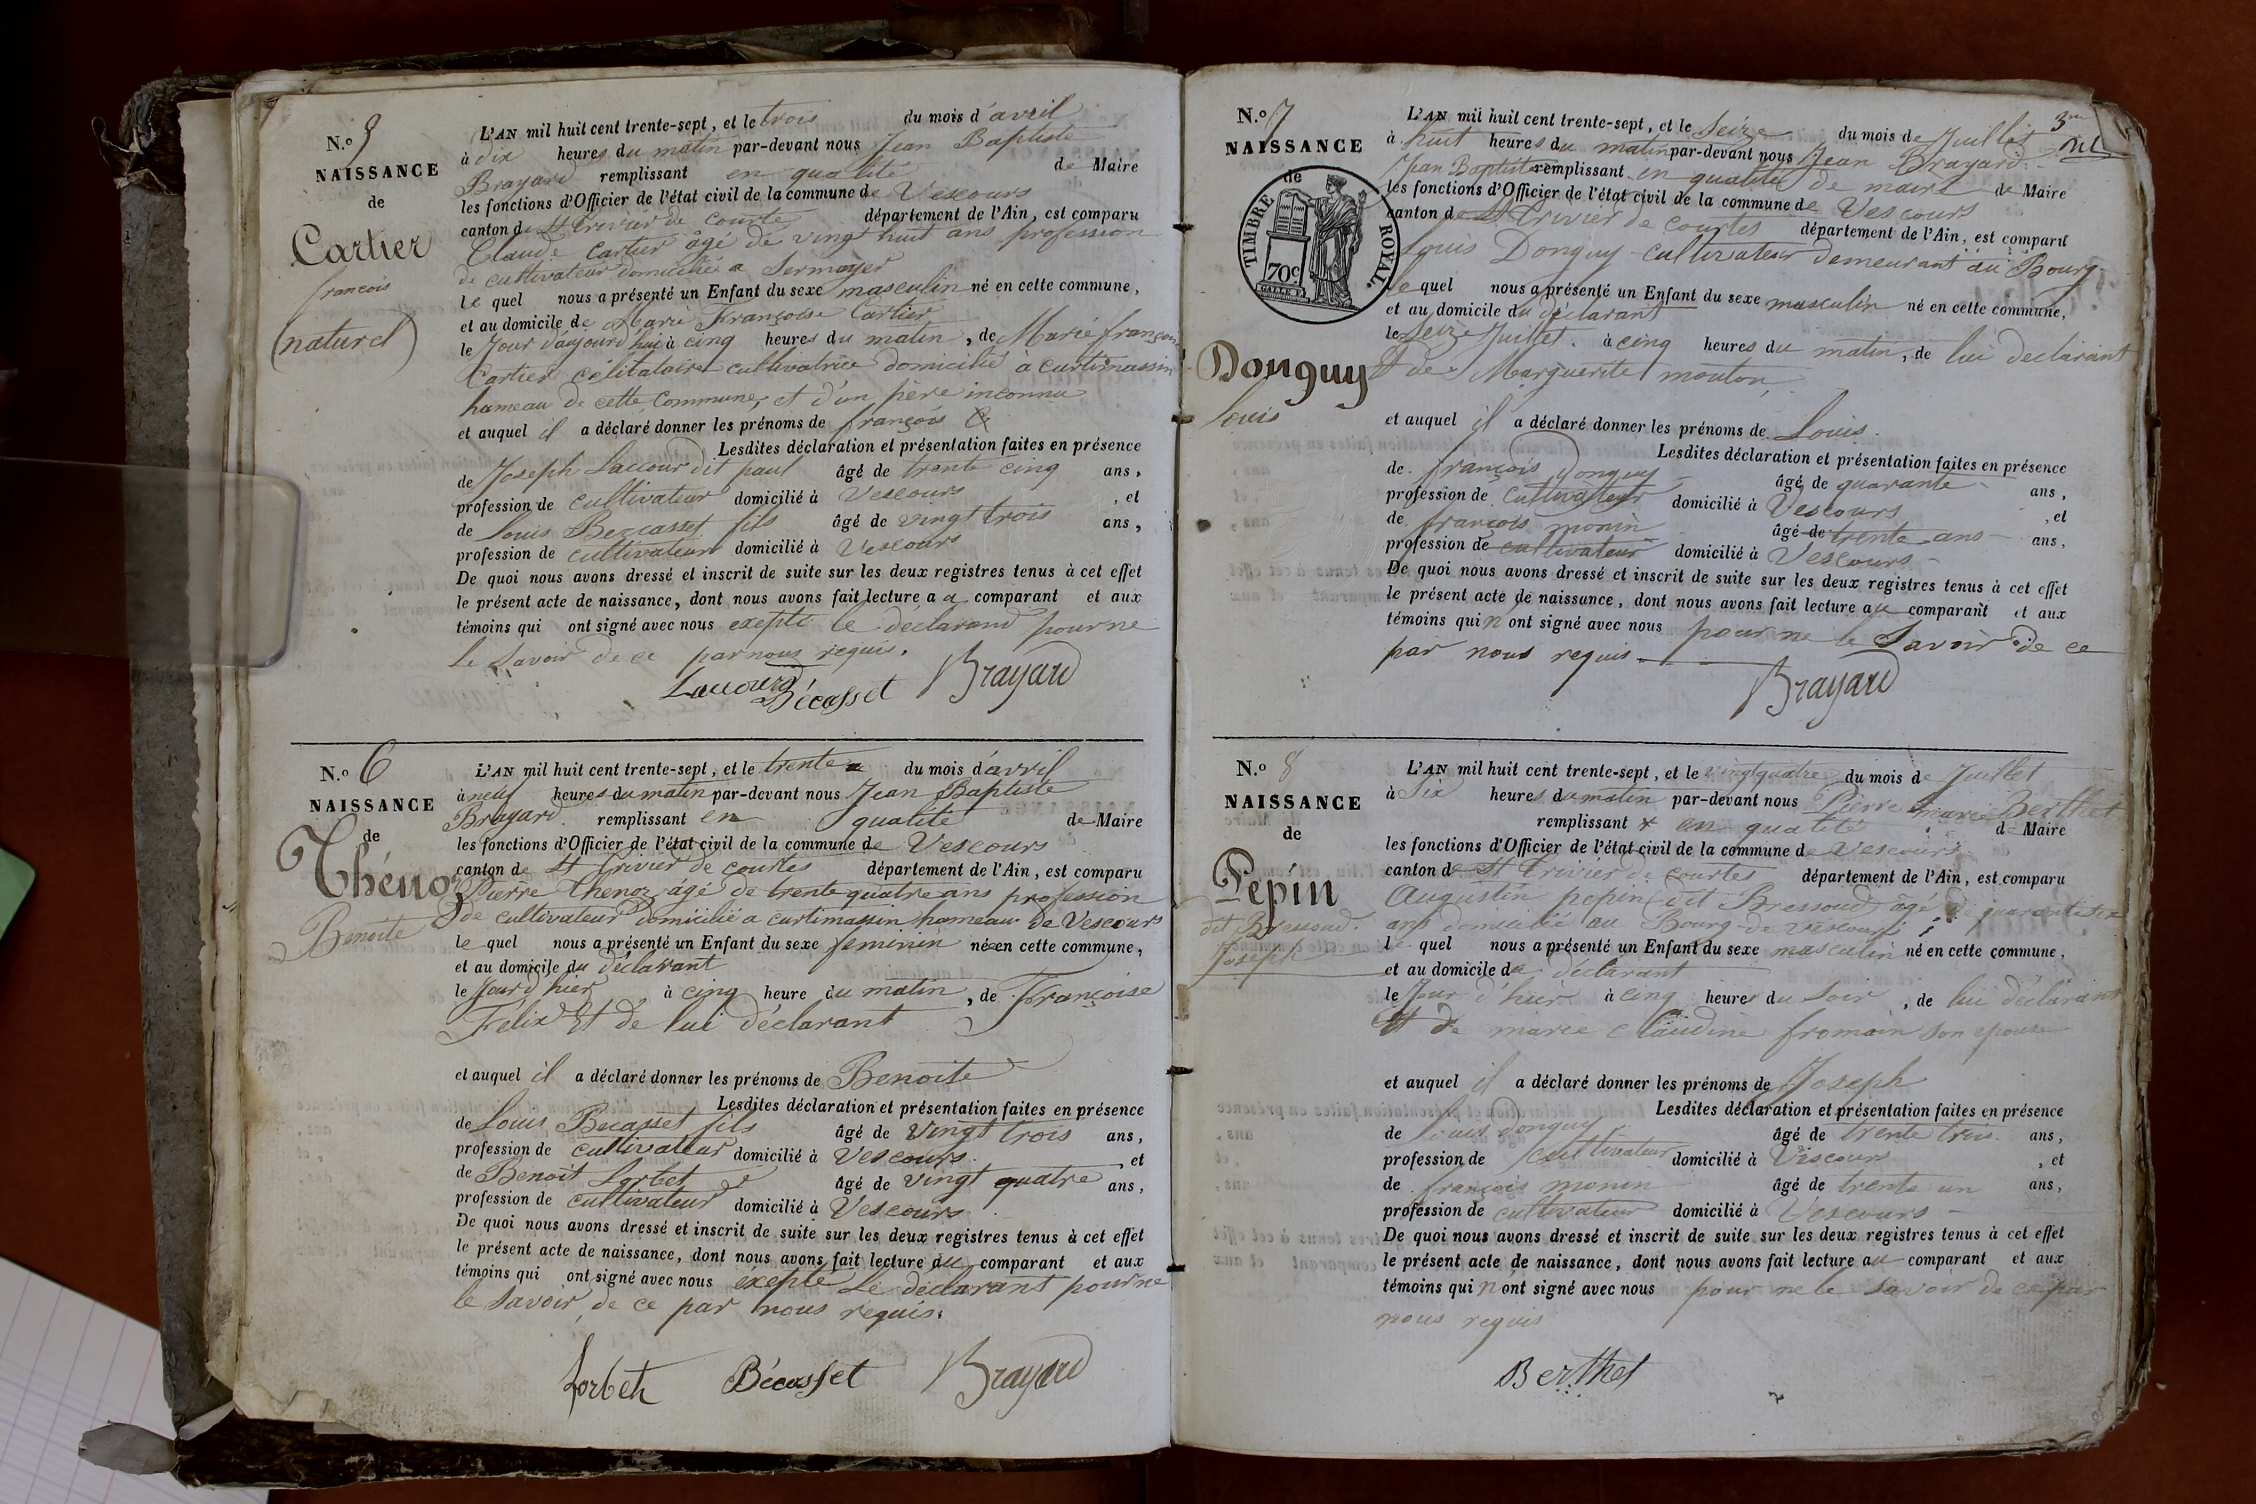 N.o 5
NAISSANCE
de
Cartier
françois
(naturel)
L'AN mil huit cent trente-sept, et le trois du mois d'avril
à dix heures du matin par-devant nous Jean Baptiste
Brayard remplissant en qualité de Maire
les fonctions d'Officier de l'état civil de la commune de Vescours
canton de St Trivier de Courtes département de l'Ain, est comparu
Claude Cartier âgé de vingt huit ans profession
de cultivateur domicilié a Sermoyer
le quel nous a présenté un Enfant du sexe masculin né en cette commune,
et au domicile de Marie Françoise Cartier
le Jour d'aujourd'hui à cinq heures du matin, de Marie françoise
Cartier célibataire cultivatrice domicilié à curtimassin
hameau de cette Commune, et d'un père inconnu
et auquel il a déclaré donner les prénoms de françois
Lesdites déclaration et présentation faites en présence
de Joseph Laccour dit paul âgé de trente cinq ans,
profession de cultivateur domicilié à Vescours, et
de Louis Beccasset fils âgé de vingt trois ans,
profession de cultivateur domicilié à Vescours
De quoi nous avons dressé et inscrit de suite sur les deux registres tenus à cet effet
le présent acte de naissance, dont nous avons fait lecture a a comparant et aux
témoins qui ont signé avec nous exepté le déclarand pour ne
le savoir de ce par nous requis.
Laccour Bécasset Brayard
N.o 6
NAISSANCE
de
Thénoz
Benoite
L'AN mil huit cent trente-sept, et le trente du mois d'avril
à neuf heures du matin par-devant nous Jean Baptiste
Brayard remplissant en qualité de Maire
les fonctions d'Officier de l'état civil de la commune de Vescours
canton de St Trivier de courtes département de l'Ain, est comparu
Pierre Thenoz âgé de trente quatre ans profession
de cultivateur domicilié a curtimassin hameau de Vescours
le quel nous a présenté un Enfant du sexe feminin née en cette commune,
et au domicile du déclarant
le Jour d'hier à cinq heure du matin, de Françoise
Félix Et de lui déclarant
et auquel il a déclaré donner les prénoms de Benoite
Lesdites déclaration et présentation faites en présence
de Louis Becasset fils âgé de vingt trois ans,
profession de cultivateur domicilié à Vescours, et
de Benoit Lorbet âgé de vingt quatre ans,
profession de cultivateur domicilié à Vescours
De quoi nous avons dressé et inscrit de suite sur les deux registres tenus à cet effet
le présent acte de naissance, dont nous avons fait lecture au comparant et aux
témoins qui ont signé avec nous exepté le déclarant pour ne
le savoir de ce par nous requis.
Lorbet Bécasset Brayard
N.o 7
NAISSANCE
de
TIMBRE ROYAL.
70c
Donguy
Louis
L'AN mil huit cent trente-sept, et le Seize du mois de Juillet
à huit heures du matin par-devant nous Jean Brayard
Jean Baptiste remplissant en qualité de maire de Maire
les fonctions d'Officier de l'état civil de la commune de Vescours
canton de St Trivier de courtes département de l'Ain, est comparu
Louis Donguy cultivateur demeurant au Bourg
le quel nous a présenté un Enfant du sexe masculin né en cette commune,
et au domicile du déclarant
le Seize Juillet à cinq heures du matin, de lui declarant
Et de Marguerite mouton
et auquel il a déclaré donner les prénoms de Louis
Lesdites déclaration et présentation faites en présence
de françois Donguy âgé de quarante ans,
profession de cultivateur domicilié à Vescours, et
de françois monin âgé de trente ans ans,
profession de cultivateur domicilié à Vescours
De quoi nous avons dressé et inscrit de suite sur les deux registres tenus à cet effet
le présent acte de naissance, dont nous avons fait lecture au comparant et aux
témoins qui n'ont signé avec nous pour ne le Savoir de ce
par nous requis
Brayard
N.o 8
NAISSANCE
de
Pepin
dit Bressoud
Joseph
L'AN mil huit cent trente-sept, et le vingt quatre du mois de Juillet
à Six heures du matin par-devant nous Pierre marie Berthet
remplissant en qualité de Maire
les fonctions d'Officier de l'état civil de la commune de Vescours
canton de St Trivier de courtes département de l'Ain, est comparu
Augustin pepin dit Bressoud âgé de quarante six
ans domicilié au Bourg de Vescours
le quel nous a présenté un Enfant du sexe masculin né en cette commune,
et au domicile du déclarant
le Jour d'hier à cinq heures du Soir, de lui déclarant
Et de marie Claudine fromain son epouse
et auquel il a déclaré donner les prénoms de Joseph
Lesdites déclaration et présentation faites en présence
de Louis donguy âgé de trente trois ans,
profession de cultivateur domicilié à Vescours, et
de françois monin âgé de trente un ans,
profession de cultivateur domicilié à Vescours
De quoi nous avons dressé et inscrit de suite sur les deux registres tenus à cet effet
le présent acte de naissance, dont nous avons fait lecture au comparant et aux
témoins qui n'ont signé avec nous pour ne le savoir de ce par
nous requis
Berthet